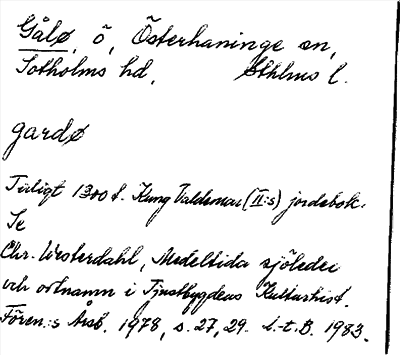 Gålø, ö, Österhaninge sn,
Sotholms hd, Sthlms l.
gardø
Tidigt 1300 t. Kung Valdemar (II:s) jordebok.
Se
Chr. Westerdahl, Medeltida sjöleder
och ortnamn i Tjustbygdens Kulturhist.
Fören:s Årsb. 1978, s. 27, 29. L.-t.B. 1983.